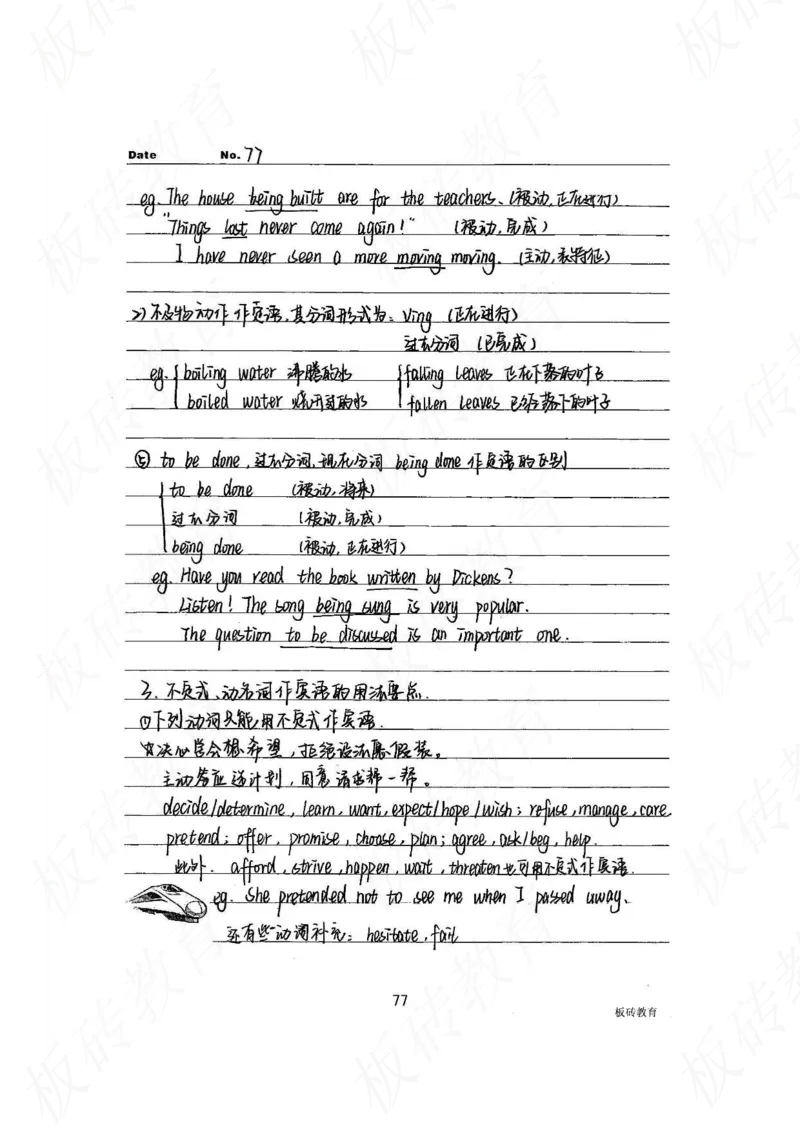 Date No. 77
eg. The house being built are for the teachers. (被动,正在进行)
"Things lost never come again!" (被动,完成)
I have never seen a more moving moving. (主动,表特征)
2)不及物动作作定语,其分词形式为: Ving (正在进行)
过去分词 (已完成)
eg. { boiling water 沸腾的水 { falling leaves 正在下落的叶子
boiled water 烧开过的水 fallen leaves 已经落下的叶子
⑤ to be done, 过去分词, 现在分词 being done 作定语的区别
to be done (被动,将来)
过去分词 (被动,完成)
being done (被动,正在进行)
eg. Have you read the book written by Dickens?
Listen! The song being sung is very popular.
The question to be discussed is an important one.
3. 不定式、动名词作宾语的用法要点.
①下列动词只能用不定式作宾语.
☆决心学会想希望,拒绝设法愿假装。
主动答应选计划,同意请求帮一帮。
decide/determine, learn, want, expect/hope/wish; refuse, manage, care,
pretend; offer, promise, choose, plan; agree, ask/beg, help.
此外. afford, strive, happen, wait, threaten也可用不定式作宾语.
eg. She pretended not to see me when I passed away.
还有些动词补充: hesitate, fail
77
板砖教育